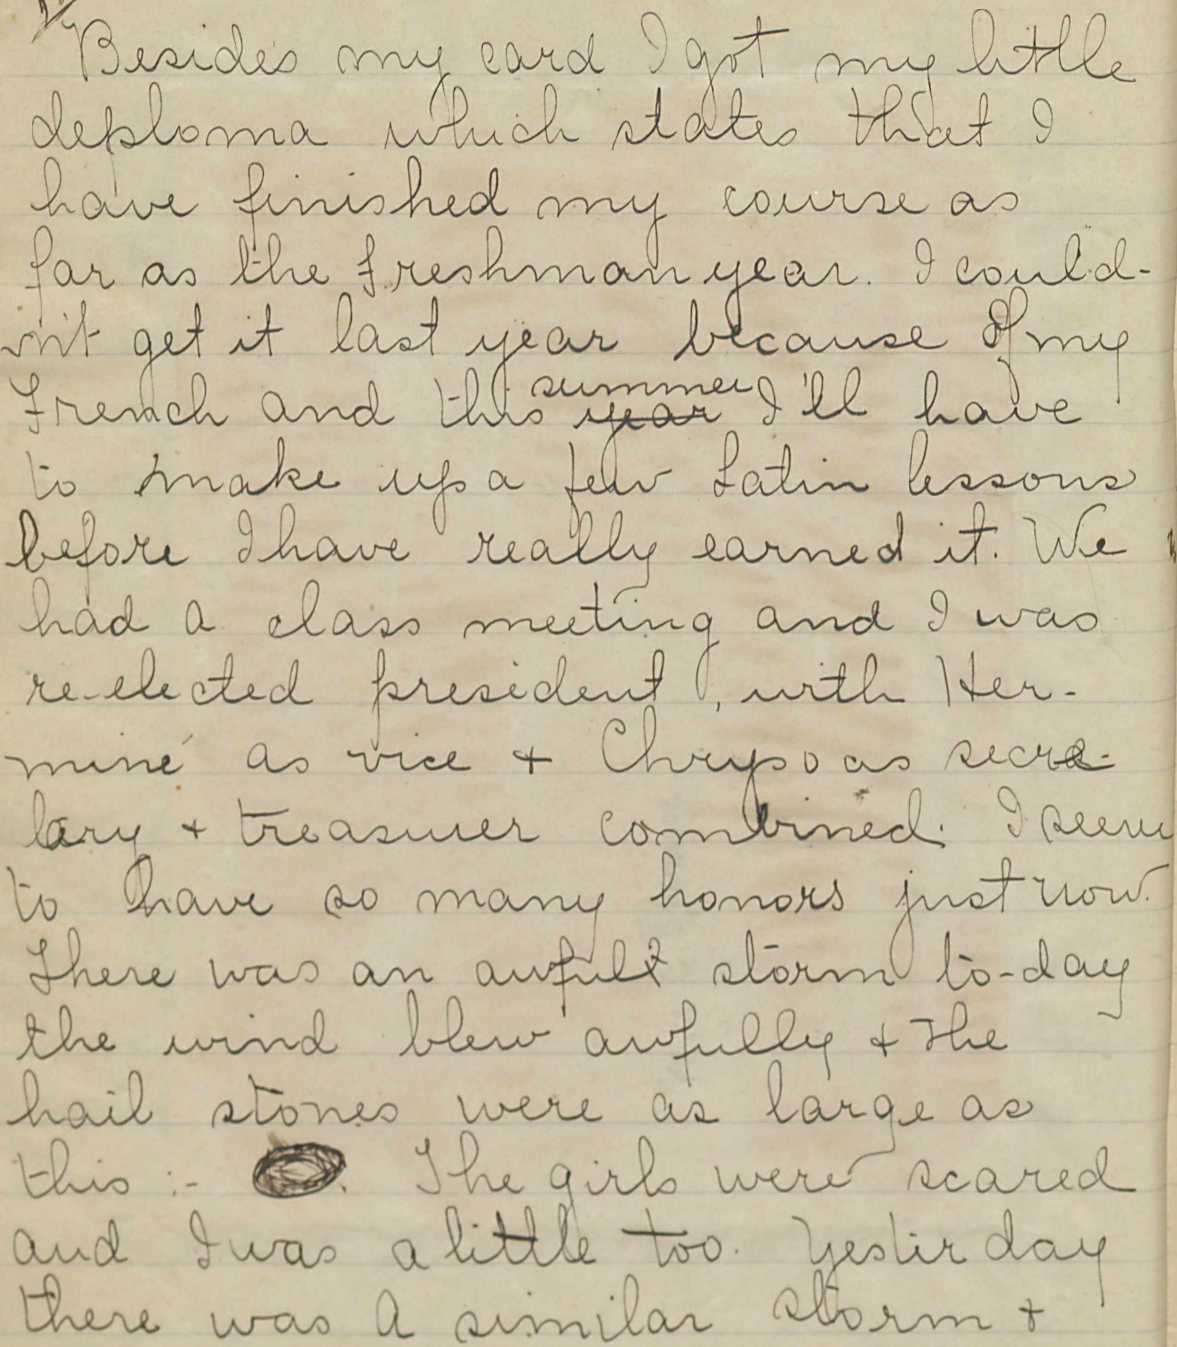 Besides my card I got my little
deploma which states that I
have finished my course as
far as the Freshman year. I could-
n't get it last year because of my
French and this year summer I'll have
to make up a few Latin lessons
before I have really earned it. We
had a class meeting and I was
re-elected president, with Her-
miné as vice + Chryso as secre-
tary + treasurer combined. I seem
to have so many honors just now.
There was an awful storm to-day
the wind blew awfully + the
hail stones were as large as
this :- . The girls were scared
and I was a little too. Yesterday
there was a similar storm +